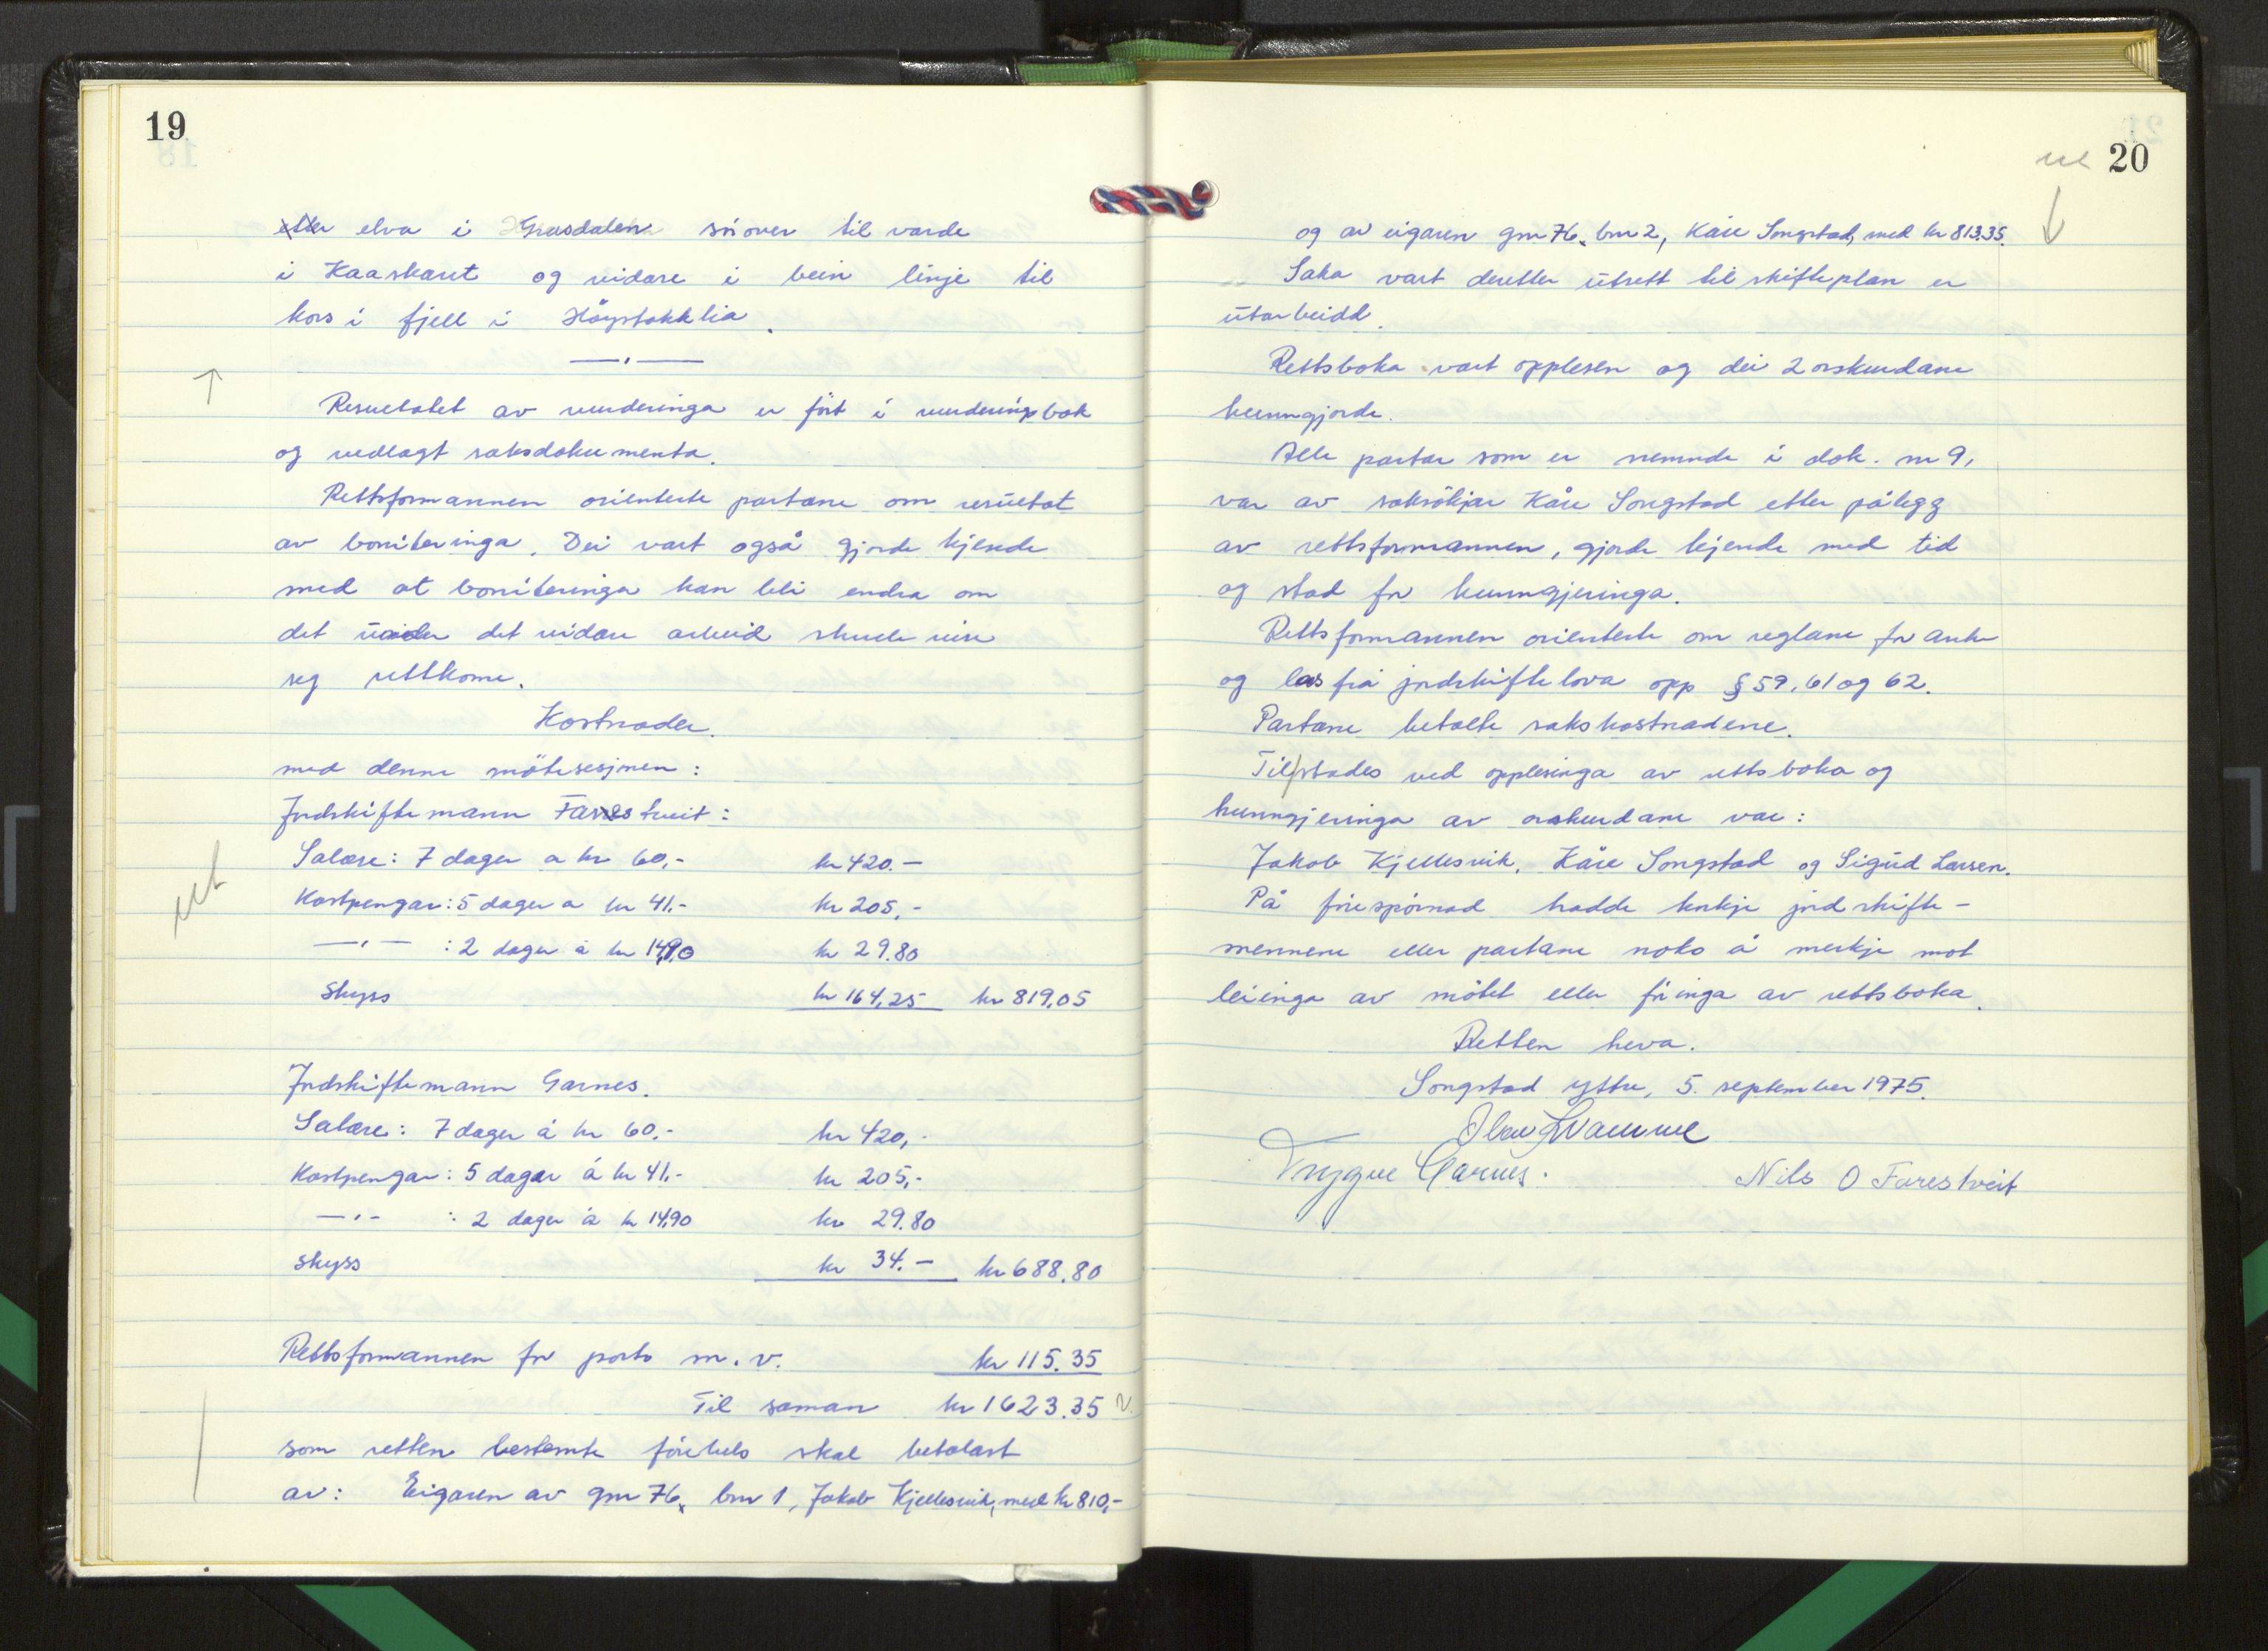 19
etter elva i Grasdalen sörover til varde
i Kaaskaret og vidare i bein linje til
kors i fjell i Högstokklia.
Resultatet av vurderinga er fört i vurderingsbok
og vedlagt saksdokumenta.
Rettsformannen orienterte partane om resultat
av boniteringa. Dei vart også gjorde kjende
med at boniteringa kan bli endra om
det under det vidare arbeid skulle vise
seg rettkome.
Kostnader
med denne mötesesjonen:
Jordskiftemann Farestveit:
Salære: 7 dager a kr 60,- kr 420.-
Kostpengar: 5 dager a kr 41,- kr 205,-
—"— : 2 dager á kr 14,90 kr 29.80
Skyss kr 164,25 kr 819,05
Jordskiftemann Garnes.
Salære: 7 dager á kr 60,- kr 420,-
Kostpengar: 5 dagar á kr 41,- kr 205,-
—"— : 2 dager á kr 14,90 kr 29.80
Skyss kr 34.— kr 688.80
Rettsformannen for porto m.v. kr 115.35
Til saman kr 1623.35
som retten bestemte förebels skal betalast
av: Eigaren av gnr 76, bnr 1, Jakob Kjellesvik, med kr 810,-
20
og av eigaren gnr 76, bnr 2, Kåre Songstad, med kr 813.35.
Saka vart deretter utsett til skifteplan er
utarbeidd.
Rettsboka vart opplesen og dei 2 orskurdane
kunngjorde.
Alle partar som er nemnde i dok. nr 9,
var av saksökjar Kåre Songstad etter pålegg
av rettsformannen, gjorde kjende med tid
og stad for kunngjeringa.
Rettsformannen orienterte om reglane for anke
og las frå jordskiftelova opp § 59, 61 og 62.
Partane betalte sakskostnadene.
Tilstades ved opplesinga av rettsboka og
kunngjeringa av orskurdane var:
Jakob Kjellesvik, Kåre Songstad og Sigurd Larsen.
På förespörnad hadde korkje jordskifte-
mennene eller partane noko å merkje mot
leiinga av mötet eller föringa av rettsboka.
Retten heva.
Songstad yttre, 5. september 1975.
Trygve Garnes. Nils O Farestveit